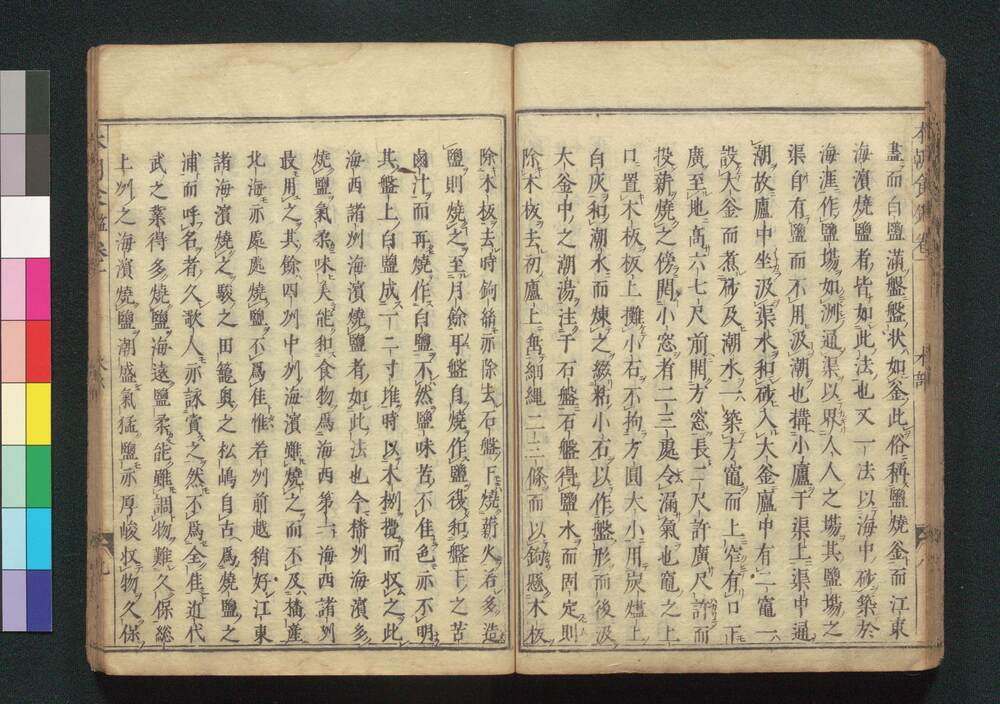 盡而白鹽滿盤盤状如釜此俗稱鹽燒釜而江東
海濱燒鹽者皆如此法也又一法以海中砂築於
海涯作鹽塲如洲通渠以界人人之塲其鹽塲之
渠自有鹽而不用汲潮也搆小廬于渠上渠中通
潮故廬中坐汲渠水和砂入大釜廬中有二竈一
設大釜而煮砂及潮水一築方竈而上窄有口下
廣至地高六七尺前開方窓長二尺許廣尺許而
投薪燒之傍開小窓者二三處令漏氣也竈之上
口置木板板上攤小石不拘方圓大小用炭爐上
白灰和潮水而煉之綴粘小石以作盤形而後汲
大釜中之潮湯注于石盤石盤得鹽水而固定則
除木板去初廬上繫細繩二三條而以鉤懸木板
除木板去時鉤繩亦除去石盤下燒薪火者多造
鹽則燒之至月餘耳盤自燒作鹽復和盤下之苦
鹵汁而再燒作白鹽不然鹽味苦不佳色亦不明
其盤上白鹽成一二寸堆時以木捌攪而收之此
海西諸州海濱燒鹽者如此法也今播州海濱多
燒鹽氣柔味美能和食物爲海西第一海西諸州
歧用之其餘四州中州海濱雖燒之而不及播産
北海亦處處燒鹽不爲佳惟若州前越稍好江東
諸海濱燒之駿之田籠奥之松嶋自古爲燒鹽之
浦而呼名者久歌人亦詠賞之然不爲全佳近代
武之業得多燒鹽海遠鹽柔能雖調物難久保総
上州之海濱燒鹽潮盛氣猛鹽亦厚峻収物久保